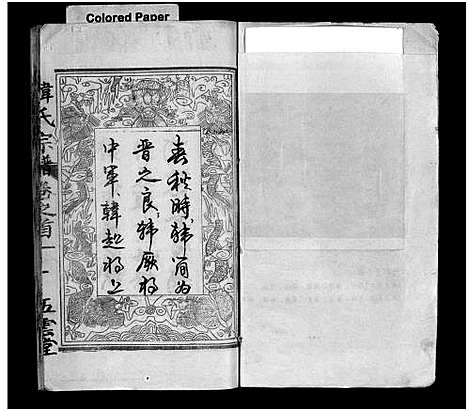 Colored Paper
春秋時韓簡為
晋之良韩厥将
中軍韓起将上
韓氏宗譜卷之首一
五雲堂